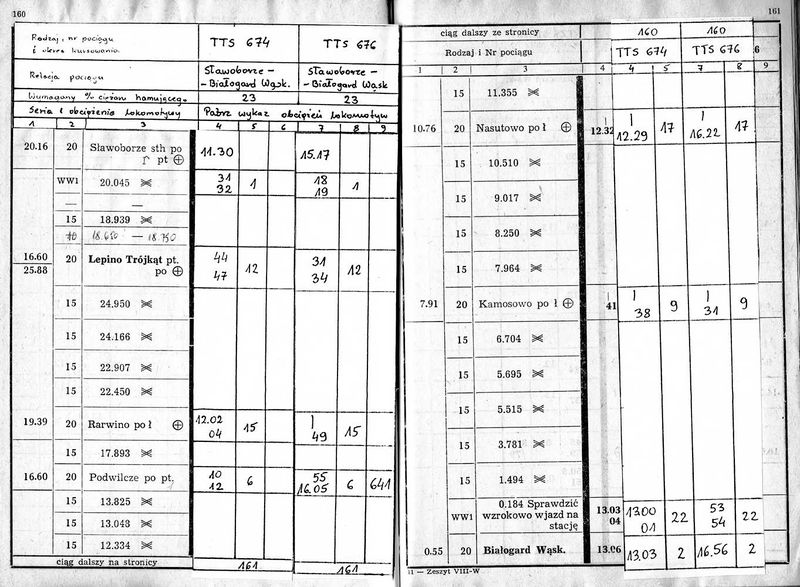 160
Rodzaj, nr pociągu
i okres kursowania
TTS 674 TTS 676
Relacja pociągu
Sławoborze – – Białogard Wąsk. Sławoborze – – Białogard Wąsk
Wymagany % ciężaru hamującego 23 23
Seria i obciążenie lokomotywy Patrz wykaz obciążeń lokomotyw
1 2 3 4 5 6 7 8 9
20.16 20 Sławoborze sth po 11.30 15.17
pt
WW1 20.045 31 32 1 18 19 1
— —
15 18.939
18.650 — 18.750
16.60 20 Lepino Trójkąt pt. 44 31
25.88 po 47 12 34 12
15 24.950
15 24.166
15 22.907
15 22.450
19.39 20 Rarwino po ł 12.02 04 15 | 49 15
15 17.893
16.60 20 Podwilcze po pt. 10 12 6 55 16.05 6 641
15 13.825
15 13.043
15 12.334
ciąg dalszy na stronicy 161 161
161
ciąg dalszy ze stronicy 160 160
Rodzaj i Nr pociągu TTS 674 TTS 676 6
1 2 3 4 4 5 7 8 9
15 11.355
10.76 20 Nasutowo po ł 12.32 | 12.29 17 | 16.22 17
15 10.510
15 9.017
15 8.250
15 7.964
7.91 20 Kamosowo po ł | 41 | 38 9 | 31 9
15 6.704
15 5.695
15 5.515
15 3.781
15 1.494
0.184 Sprawdzić
WW1 wzrokowo wjazd na 13.03 04 13.00 01 22 53 54 22
stację
0.55 20 Białogard Wąsk. 13.06 13.03 2 16.56 2
11 — Zeszyt VIII-W